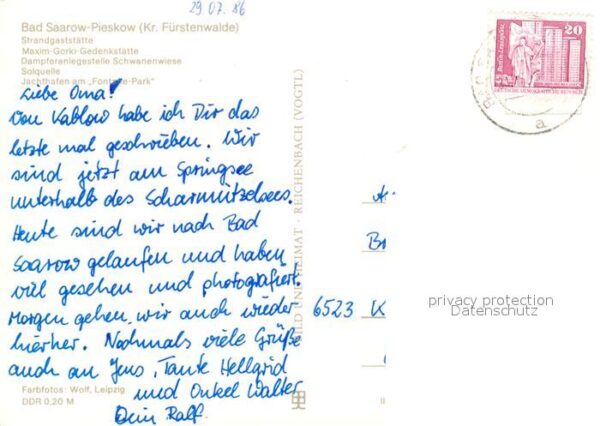 29.07.86
Bad Saarow-Pieskow (Kr. Fürstenwalde)
Strandgaststätte
Maxim-Gorki-Gedenkstätte
Dampferanlegestelle Schwanenwiese
Solquelle
Jachthafen am „Fontane-Park"
Liebe Oma!
Von Kablow habe ich Dir das
letzte mal geschrieben. Wir
sind jetzt am Springsee
unterhalb des Scharmützelsees.
Heute sind wir nach Bad
Saarow gelaufen und haben
viel gesehen und photografiert.
Morgen gehen wir auch wieder
hierher. Nochmals viele Grüße
auch an Jens, Tante Hellgrid
und Onkel Walter
Dein Ralf.
Farbfotos: Wolf, Leipzig
DDR 0,20 M
BILD UND HEIMAT · REICHENBACH (VOGTL)
20
DEUTSCHE DEMOKRATISCHE REPUBLIK
a
6523 K
privacy protection
Datenschutz